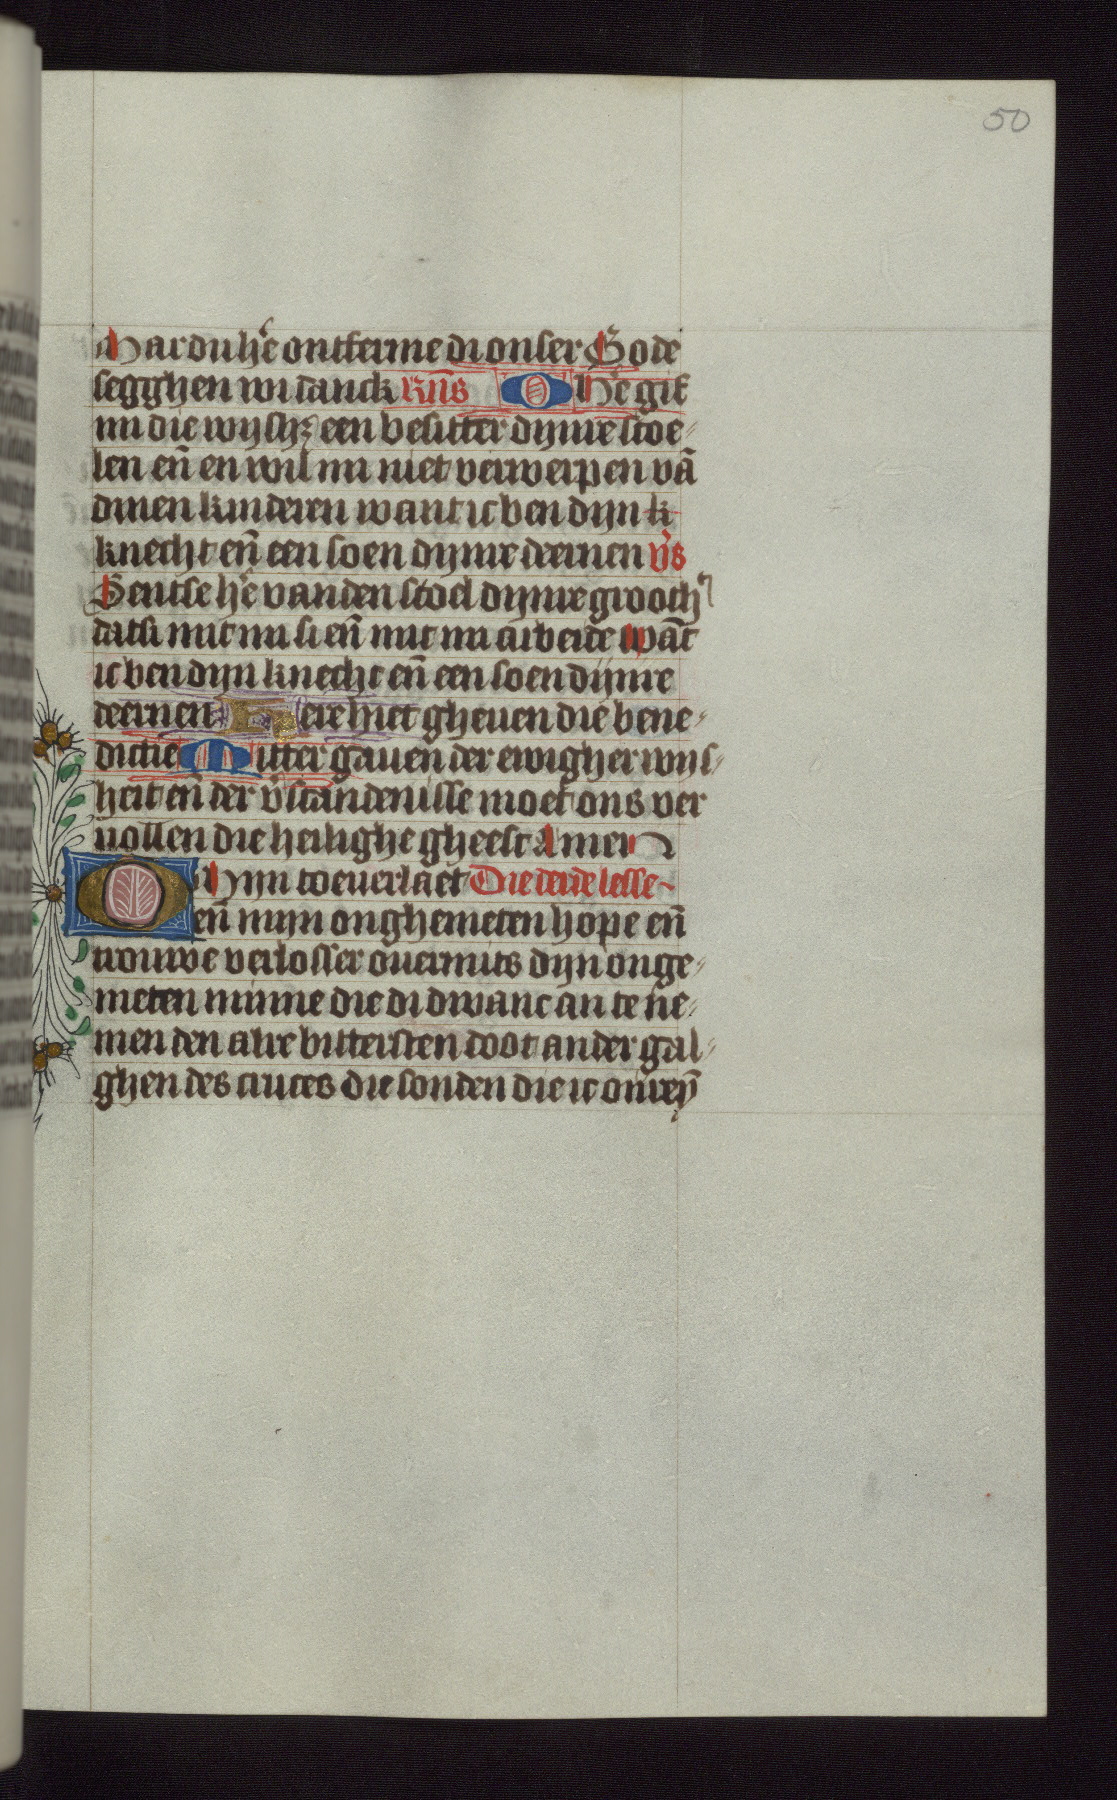 50
Mar du hẽ ontferme di onser Gode
segghen wi danck Rñs O Hẽ gif
mi die wijshʒ een besitter dijnre stoe
len eñ en wil mi niet verwerpen vã
dinen kinderen want ic ben dijn k
knecht eñ een soen dijnre deernen v̾s
Sentse hẽ van den stoel dijnre grooth̾
datsi mit mi si eñ mit mi arbeide wãt
ic ben dijn knecht eñ een soen dijnre
deernen Here hiet gheuen die bene
dictie Mitter gauen der ewigher wijs
heit eñ der v̾standenisse moet ons ver
vollen die heilighe gheest Amen
O Mijn toeuerlaet Die derde lesse
eñ mijn onghemeten hope eñ
trouwe verlosser ouermits dijn onge
meten minne die di dwanc an te ne
men den alre bittersten doot an der gal
ghen des cruces die sonden die ic onreÿ